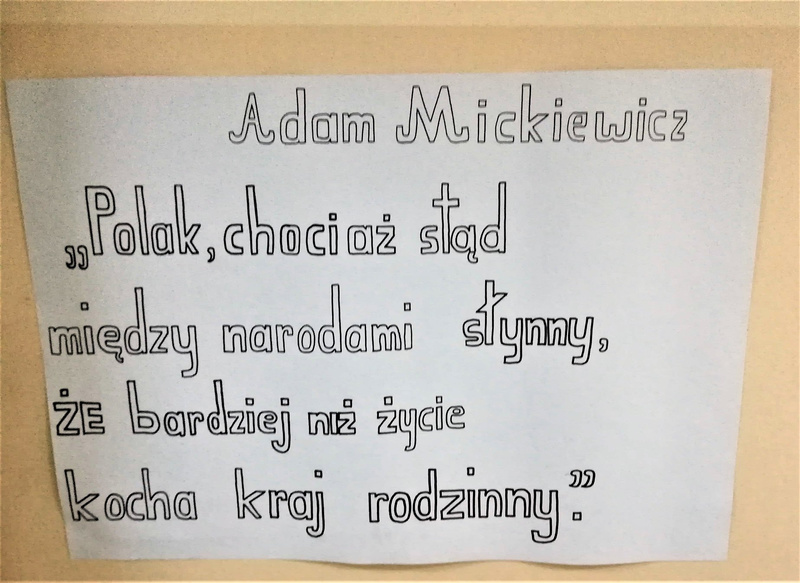 Adam Mickiewicz
„Polak, chociaż stąd
między narodami słynny,
ŻE bardziej niż życie
kocha kraj rodzinny.”